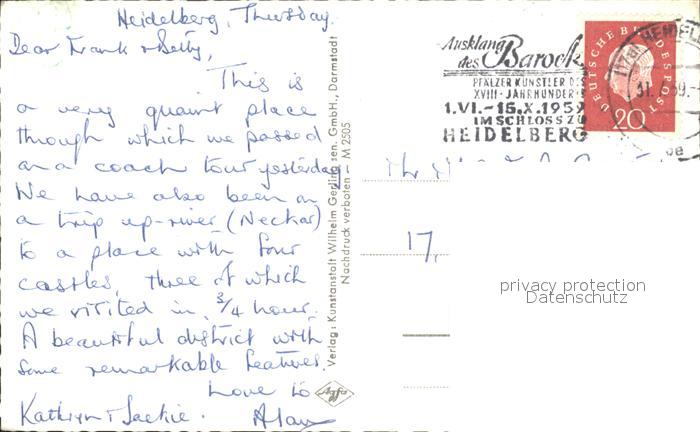 Heidelberg, Thursday.
Dear Frank & Betty,
This is
a very quaint place
through which we passed
on a coach tour yesterday
We have also been on
a trip up-river (Neckar)
to a place with four
castles, three of which
we visited in 3/4 hour.
A beautiful district with
some remarkable features.
Love to
Kathryn & Jackie. Alan
Verlag: Kunstanstalt Wilhelm Gerling sen. GmbH., Darmstadt
Nachdruck verboten - M 2505
Agfa
Ausklang
des Barock
PFÄLZER KÜNSTLER DES
XVIII. JAHRHUNDERTS
1.VI.-15.X.1959
IM SCHLOSS ZU
HEIDELBERG
DEUTSCHE BUNDESPOST
20
17,
privacy protection
Datenschutz